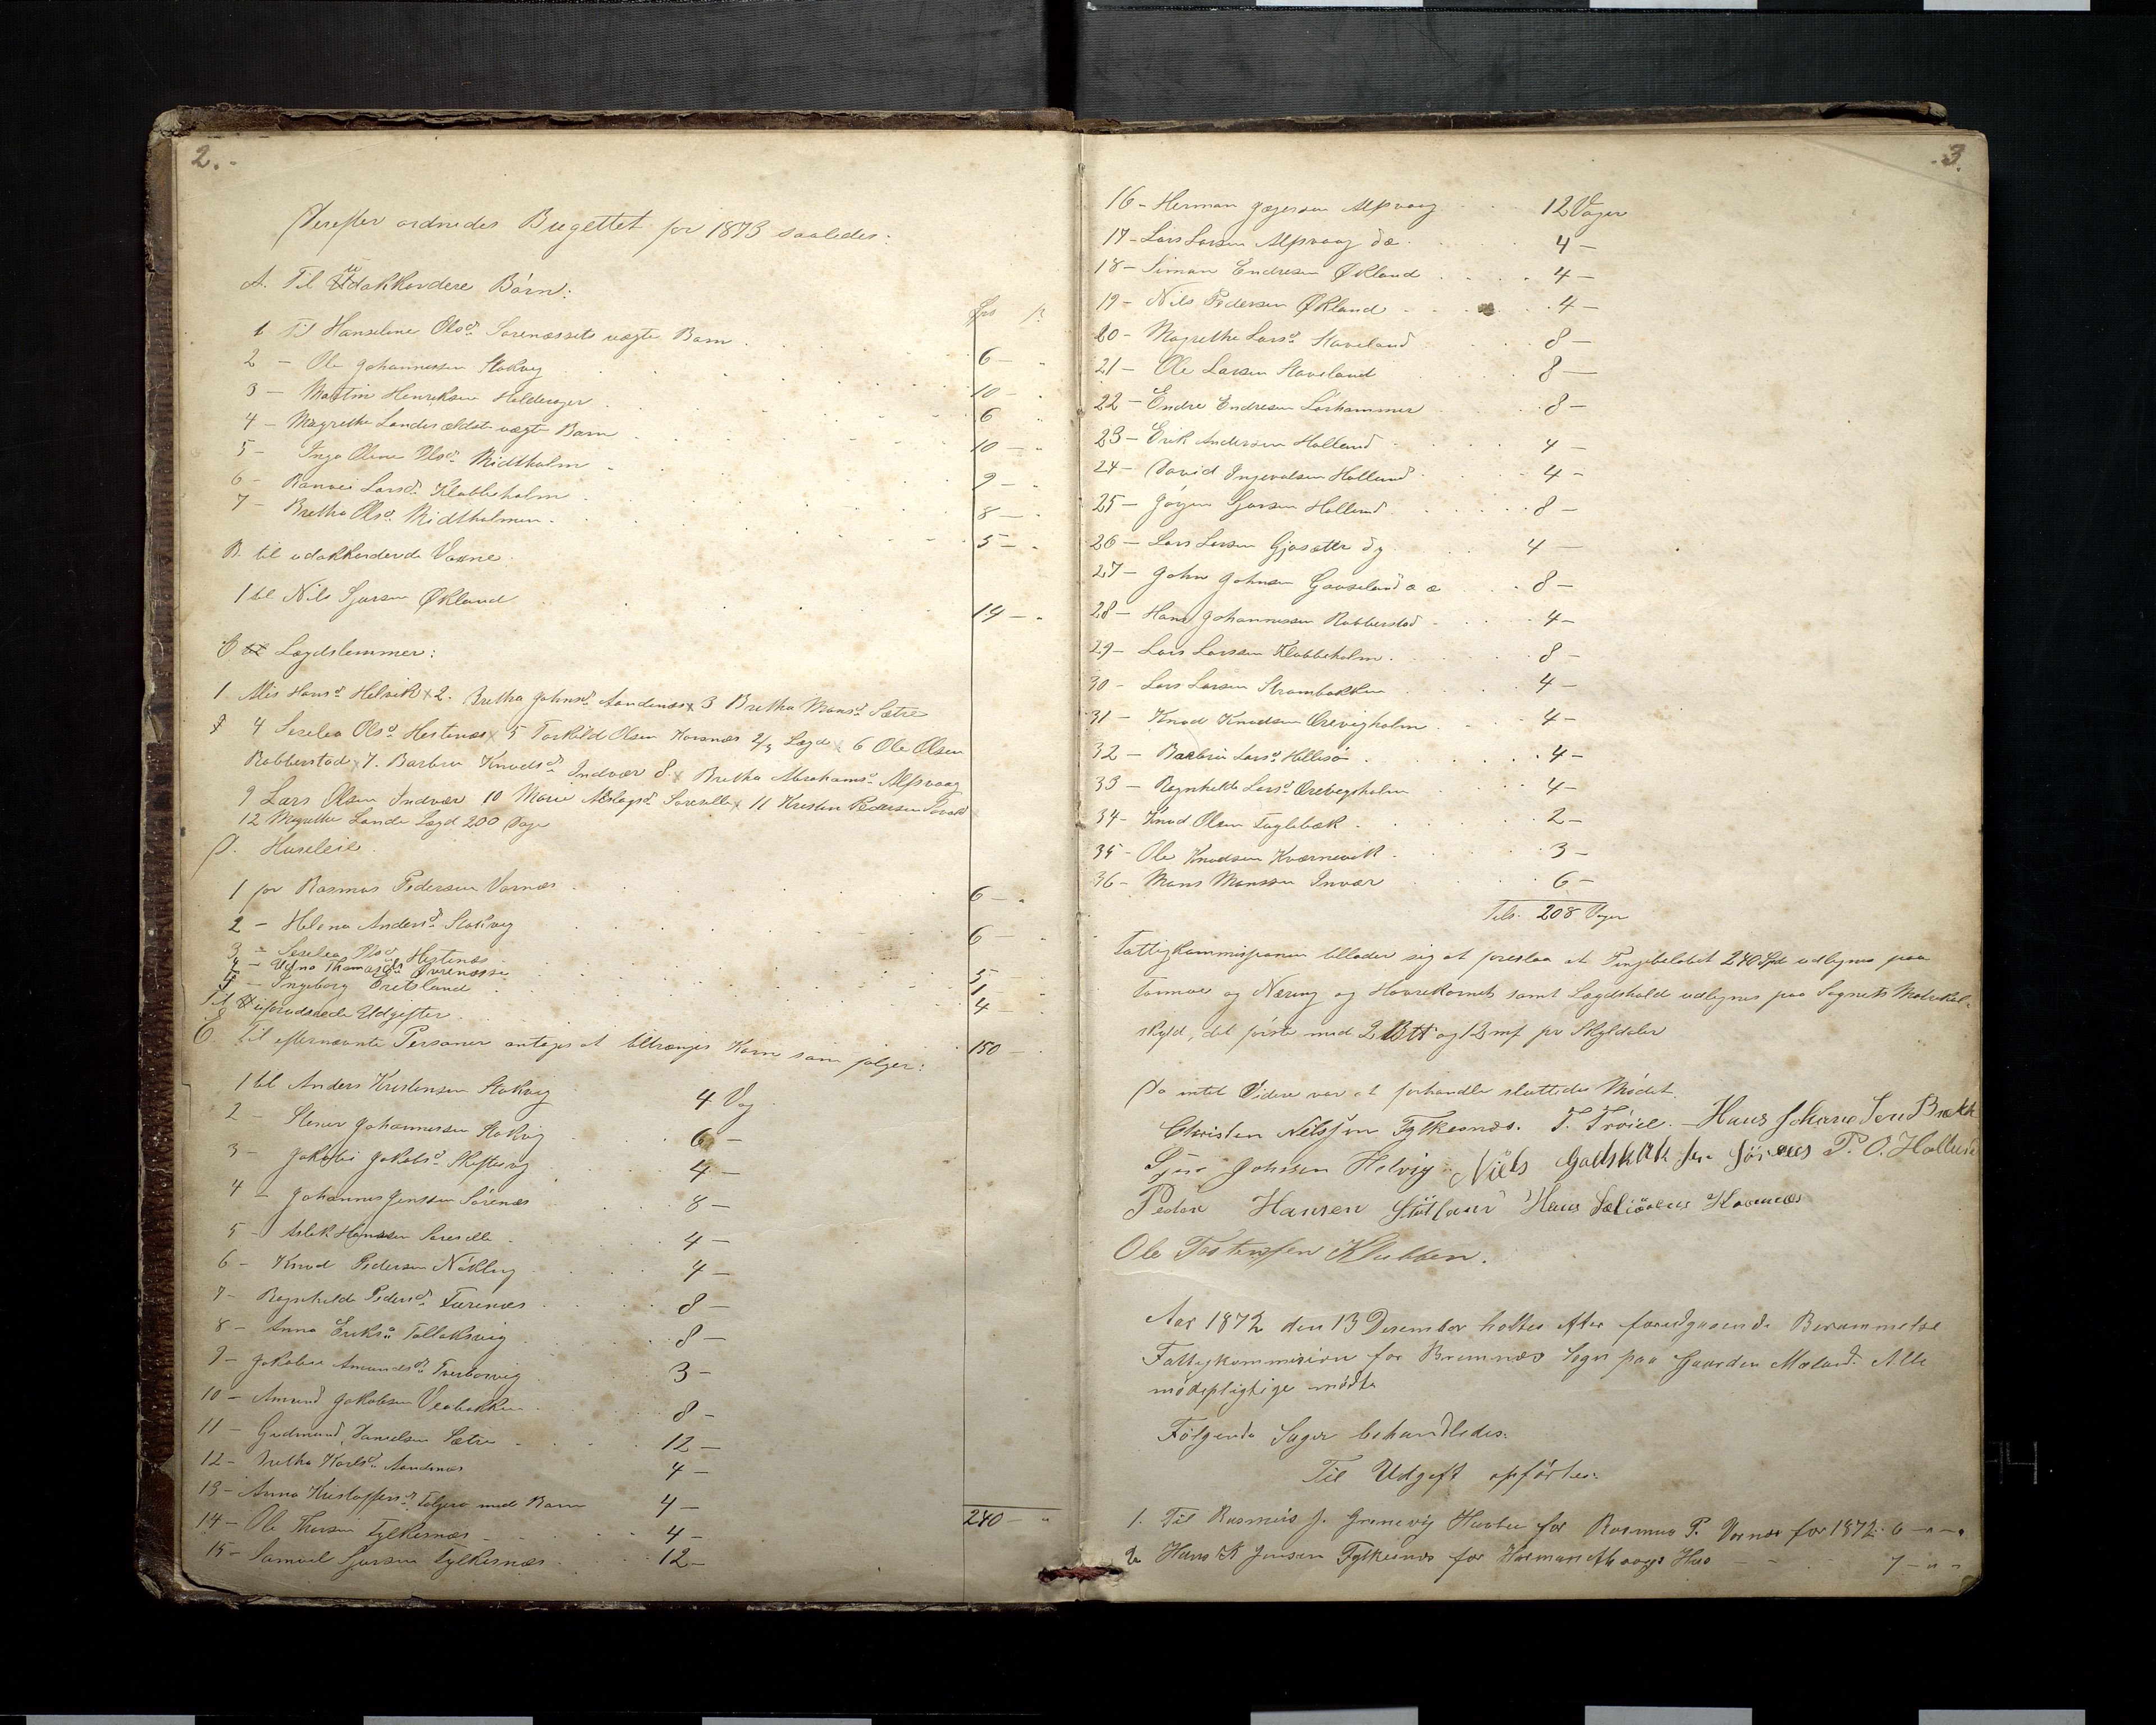 2.-
Derefter ordnedes Bugettet for 1873 saaledes:
A. Til Udakkordere Børn:
1 Til Hanseline Olsd. Sørenæssets uægte Barn 6 -
2 - Ole Johannessen Stokvig 10 -
3 - Martin Henriksen Helderøger 6
4 - Magrethe Landes ældste uægte Barn 10 -
5 - Inga Oline Olsd. Midtholm 9 -
6 - Ranvei Larsd. Klubbeholm 8 -
7 - Bretha Olsd. Midtholmen 5 -
B. til udakkorderede Voxne
1 til Nils Sjursen Økland 14 -
C. Lægdslemmer:
1 Alis Hansd. Helvik x 2. Bretha Johnsd. Aandenæs x 3 Bretha Monsd. Sætre
4 Seselea Olsd. Hestenæs x 5 Torkild Olsen Hovsnæs 2/3 Lægd x 6 Ole Olsen
Robberstad x 7. Barbru Knudsd. Indvær 8. x Bretha Abrahamsd. Alfsvaag
9 Lars Olsen Indvær 10 Marie Aslagsd. Sørselle x 11 Kristen Pedersen
12 Magrethe Lande Lægd 200 Dage
D. Huseleie
1 for Rasmus Pedersen Vornæs 6 -
2 - Helena Andersd. Stokvig 6 -
3 - Seselea Olsd. Hestenæs 5
4 - Thomasd. Sørenæsse 1
5 - Ingeborg Eretsland 4 -
Til uforudseede Udgifter 150 -
Til efternævnte Personer antages at tiltrænges Korn som følger:
1 til Anders Kristensen Stokvig 4 Vog
2 - Johannessen Stokvig 6 -
3 - Jakobi Jakobsd. Skiftesvig 4 -
4 - Johannes Jenssen Sørenæs 8 -
5 - Aslak Hanssen Sørselle 4 -
6 - Knud Pedersen Nökling 4 -
7 - Ragnhilde Pedersd. Førenæs 8 -
8 - Anna Eriksd. Tollaksvig 8 -
9 - Jakobea Amundsd. 3 -
10 - Amund Jakobsen Vestbakken 8 -
11 - Gudmund Danielsen Sætre 12 -
12 - Bretha Karlsd. Aandenæs 4 -
13 - Anna Kristoffersd. Folgerø med Barn 4 -
14 - Ole Thorsen Fylkesnæs 4 -
15 - Samuel Sjursen Fylkesnæs 12 -
240 -
3.
16 - Herman Jægersen Alfsvaag 12 Voger
17 - Lars Larsen Alfsvaag do. 4 -
18 - Simon Endresen Økland 4 -
19 - Nils Pedersen Økland 4 -
20 - Magrethe Larsd. Staveland 8 -
21 - Ole Larsen Staveland 8 -
22 - Endre Endresen Sørhammer 8 -
23 - Erik Andersen Holland 4 -
24 - David Ingevalsen Hollund 4 -
25 - Jörgen Hollund 8 -
26 - Lars Larsen Gjøsæter 4 -
27 - John Johnsen Gaaseland 8 -
28 - Hans Johannessen Robberstad 4 -
29 - Lars Larssen Klubbeholm 8 -
30 - Lars Larsen Strømbakken 4 -
31 - Knud Knudsen Orevigholm 4 -
32 - Barbru Larsd. Hillesø 4 -
33 - Ragnhilde Larsd. Orevigholm 4 -
34 - Knud Olsen Fuglebæk 2 -
35 - Ole Knudsen Kværnevik 3 -
36 - Mons Monssen Invær 6 -
Tils. 208 Voger
Fattigkommissionen tillader sig at foreslaa at Pengebeløbet 240 Spd udlignes paa
Formue og Næring og Havrekornet samt Lægdshold udlignes paa Sognets Matrikul-
skyld, det første med 2 Btt og 12 mf pr Skylddaler
Da intet Videre var at forhandle sluttedes Mødet.
Christen Nilssen Fylkesnæs. T. Trøiel. - Hans Johannesen Brække
Johnsen Helvig Niels Godskalksen Sörenes P. O. Hollund
Peder Hansen Hans Hovsnæs
Ole Tostensen Klubben.
Aar 1872 den 13 Desember holtes efter foregaaende Berammelse
Fattigkommision for Bremnæs Sogn paa Gaarden Mæland. Alle
mødepligtige mødte
Følgende Sager behandledes:
Til Udgift opførtes:
1. Til Rasmus J. Grønevig Husleie for Rasmus P. Vornæs for 1872. 6 - " - "
2 Hans K Jensen Fylkesnæs for Herman Alfsvaags Hus 7 - " - "